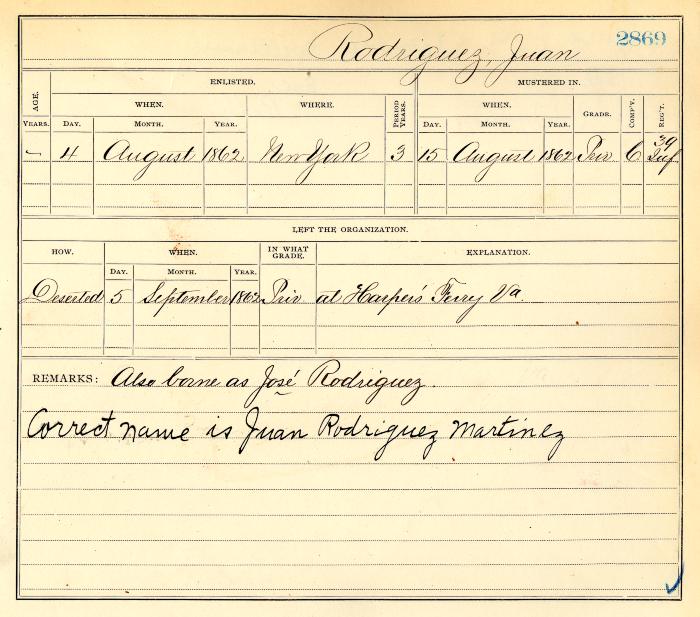 Rodriguez, Juan 2869
ENLISTED. MUSTERED IN.
AGE. WHEN. WHERE. PERIOD YEARS. WHEN. GRADE. COMP'Y. REG'T.
YEARS. DAY. MONTH. YEAR. DAY. MONTH. YEAR.
– 4 August 1862 New York 3 15 August 1862 Priv C 39 Inf
LEFT THE ORGANIZATION.
HOW. WHEN. IN WHAT GRADE. EXPLANATION.
DAY. MONTH. YEAR.
Deserted 5 September 1862 Priv at Harper's Ferry Va.
REMARKS: Also borne as José Rodriguez.
Correct name is Juan Rodriguez Martinez